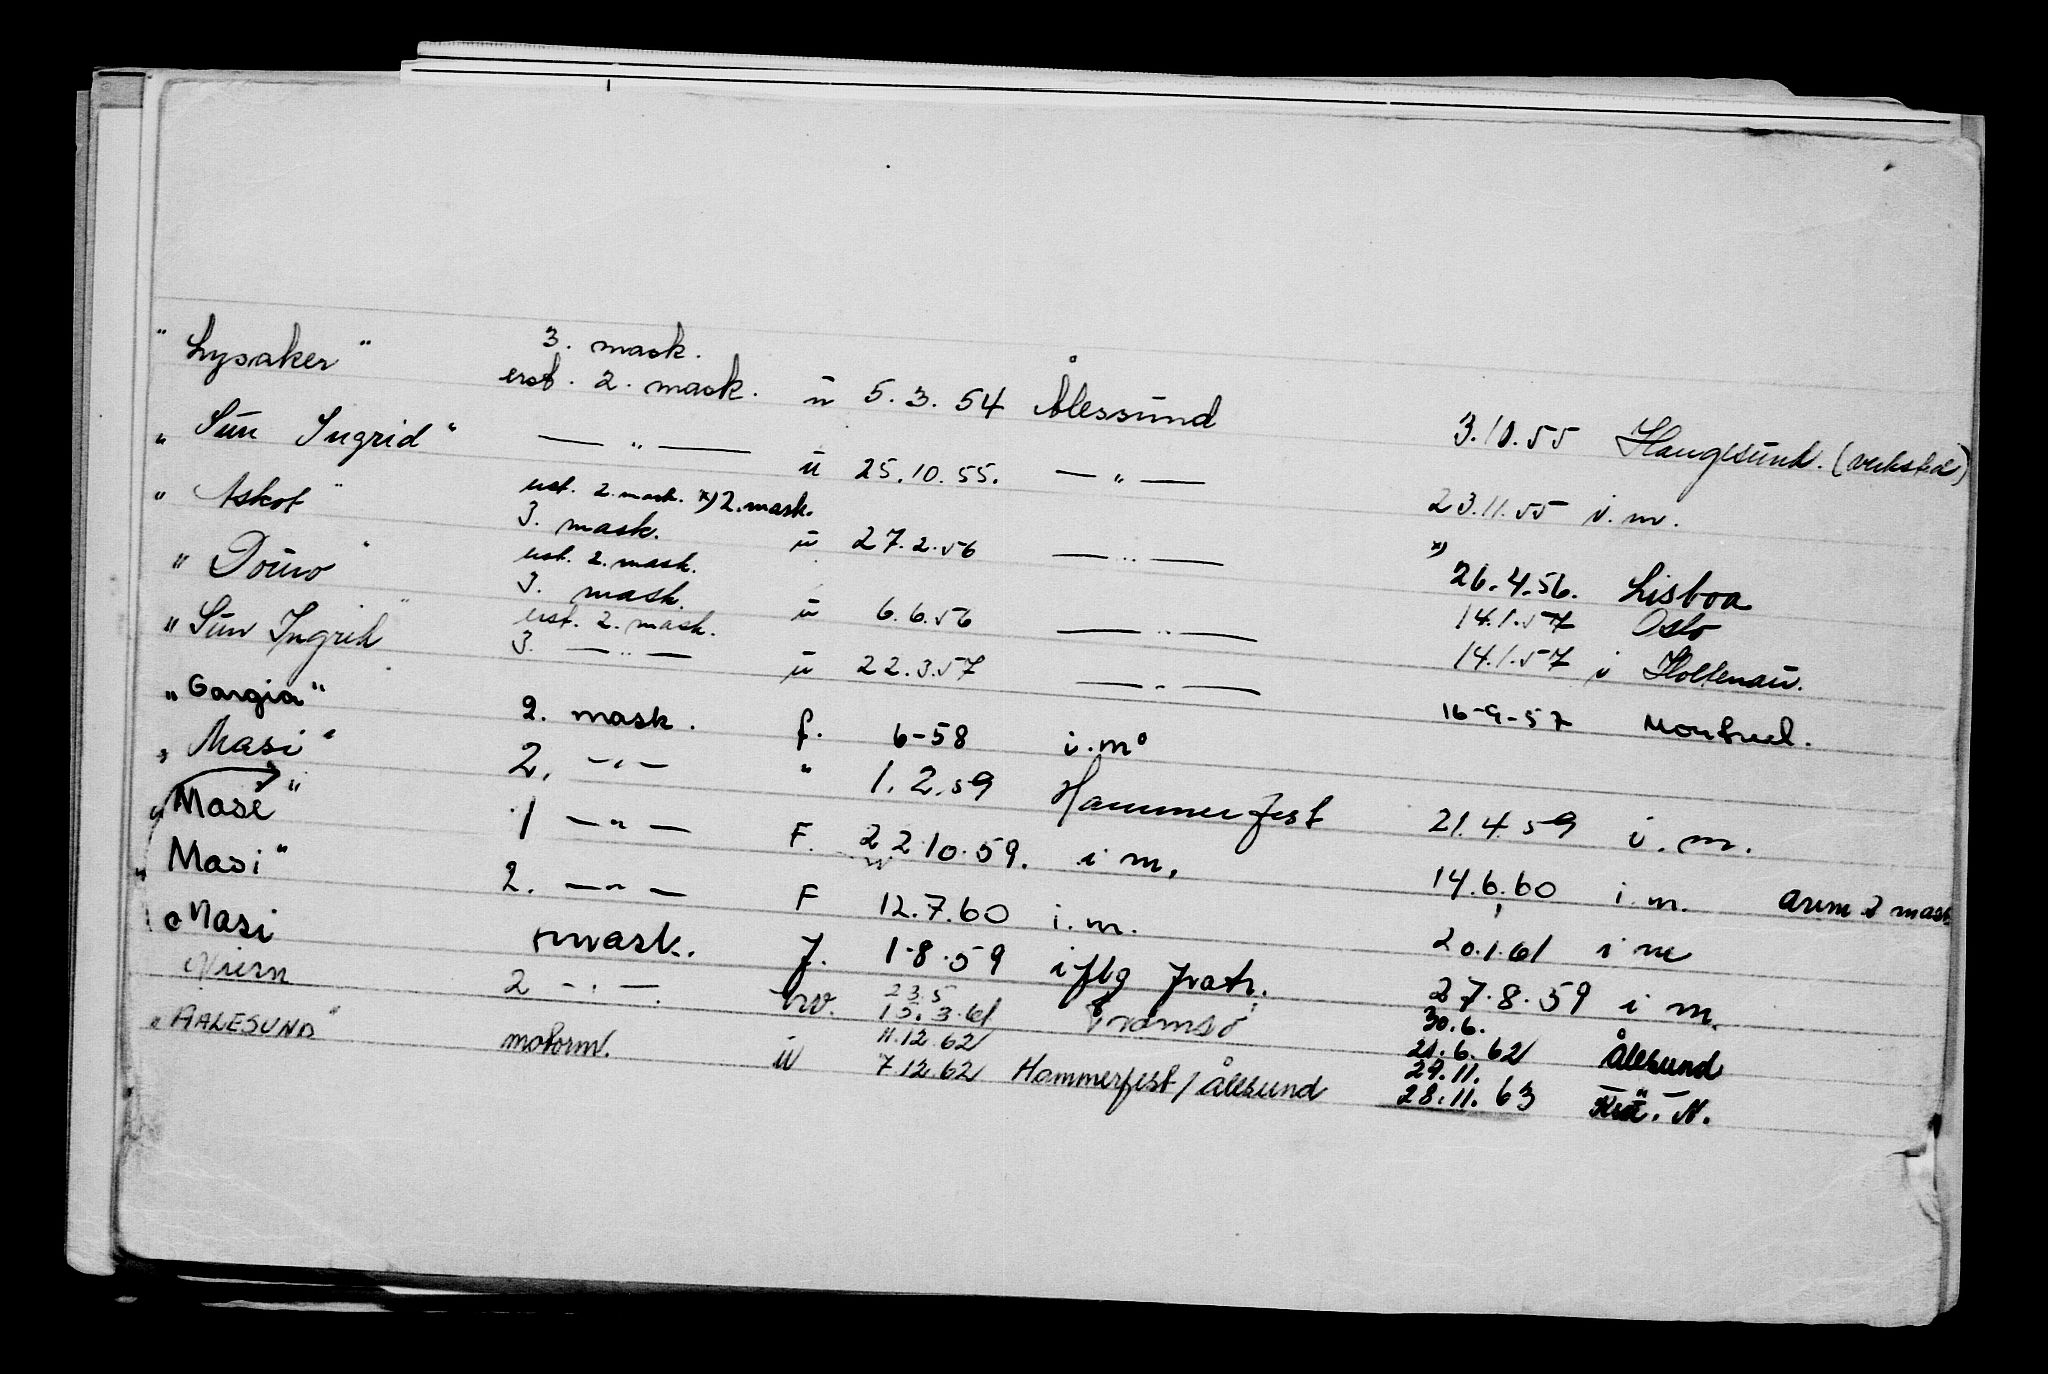 "Lysaker" 3. mask.
erst. 2. mask. ü 5.3.54 Ålessund 3.10.55 Haugesund. (verksted)
"Sun Ingrid" — " — ü 25.10.55. — " — 23.11.55 i.m.
"Askot" erst. 2. mask. x) 2. mask.
3. mask. ü 27.2.56 — " — x) 26.4.56. Lisboa
"Douro" erst. 2. mask. 14.1.57 Oslo
3. mask. ü 6.6.56 — " — 14.1.57 i Holtenau.
"Sun Ingrid" erst. 2. mask.
3. — " — ü 22.3.57 — " — 16-9-57 Montreal.
"Gargia" 2. mask. f. 6-58 i.m.
"Masi" 2. — " — " 1.2.59 Hammerfest 21.4.59 i.m.
"Masi" 1 — " — F. 22.10.59. i m. 14.6.60 i.m. avm 2 mask.
"Masi" 2. — " — F 12.7.60 i.m. 20.1.61 i m
Masi mask. f. 1-8.59 i flg fratr. 27.8.59 i m.
2 — " — 23.5 30.6.
15.3.61 Tromsö 21.6.62 Ålesund
"AALESUND" motorm. ü 11.12.62 29.11.
7.12.62 Hammerfest / Ålesund 28.11.63 — " —